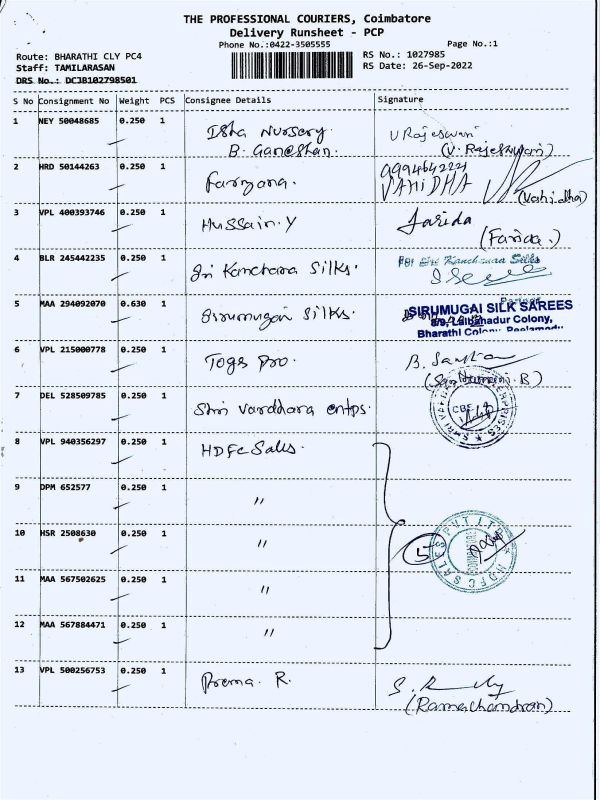 THE PROFESSIONAL COURIERS, Coimbatore
Delivery Runsheet - PCP
Phone No.:0422-3505555
Page No.:1
Route: BHARATHI CLY PC4
RS No.: 1027985
Staff: TAMILARASAN
RS Date: 26-Sep-2022
DRS No.: DCJB102798501
S No Consignment No Weight PCS Consignee Details Signature
1 NEY 50048685 0.250 1 Isha Nursery V Rajeswari
B. Ganeshan. (V. Rajeswari)
2 HRD 50144263 0.250 1 Faryana. 9994642221
VAHIDHA (Vahidha)
3 VPL 400393746 0.250 1 Hussain.Y Farida
(Farida.)
4 BLR 245442235 0.250 1 Sri Kanchana Silks. For Sri Kanchanaa Silks
Partner
5 MAA 294092070 0.630 1 Sirumugai Silks. SIRUMUGAI SILK SAREES
8/9, Lalbahadur Colony,
Bharathi Colony, Peelamedu
6 VPL 215000778 0.250 1 Togs Pro.
7 DEL 528509785 0.250 1 Shri Vardhara entps. CBE
8 VPL 940356297 0.250 1 HDFC Sales.
9 DPM 652577 0.250 1 "
10 HSR 2508630 0.250 1 " 5 HDFC SALES PVT LTD
11 MAA 567502625 0.250 1 "
12 MAA 567884471 0.250 1 "
13 VPL 500256753 0.250 1 Prema. R.
(Ramachandran)